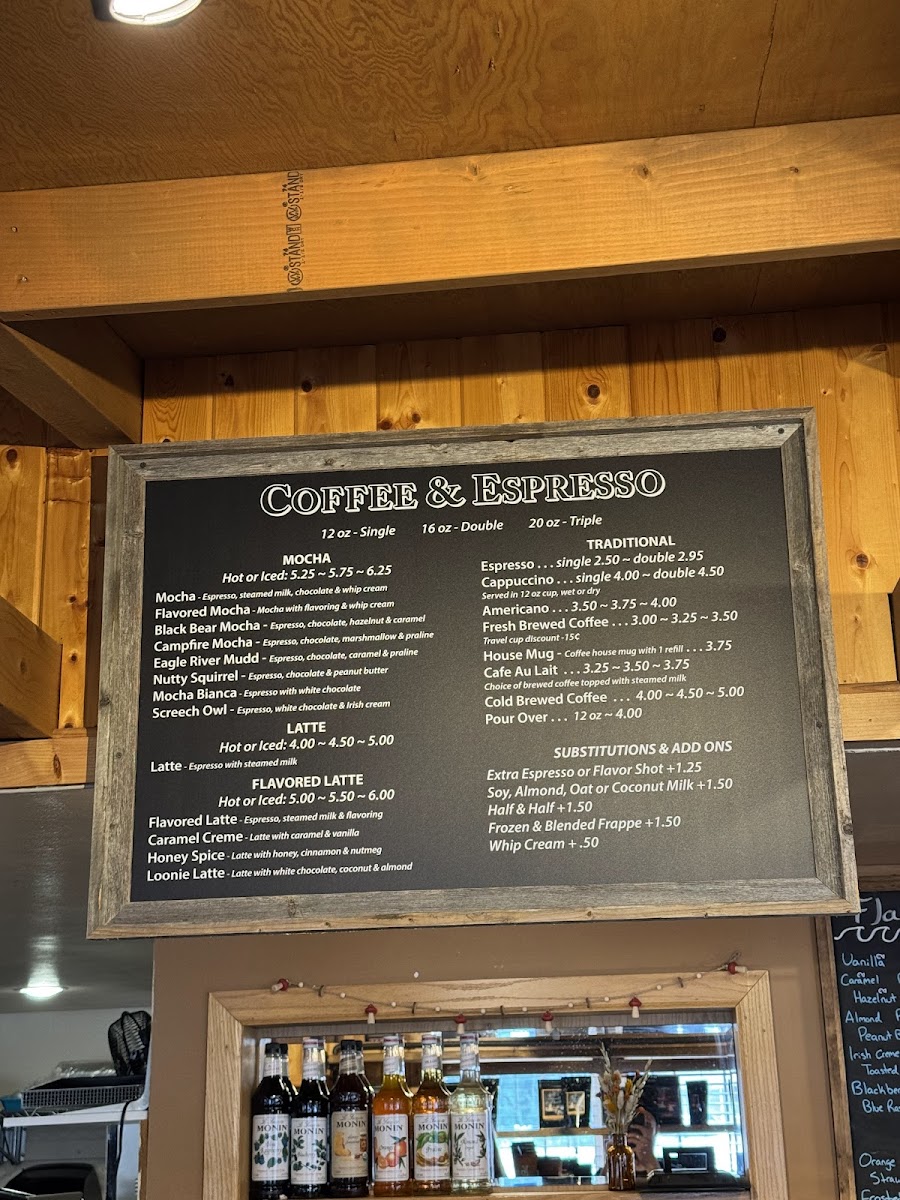 STAND
STAND
COFFEE & ESPRESSO
12 oz - Single 16 oz - Double 20 oz - Triple
MOCHA
Hot or Iced: 5.25 ~ 5.75 ~ 6.25
Mocha - Espresso, steamed milk, chocolate & whip cream
Flavored Mocha - Mocha with flavoring & whip cream
Black Bear Mocha - Espresso, chocolate, hazelnut & caramel
Campfire Mocha - Espresso, chocolate, marshmallow & praline
Eagle River Mudd - Espresso, chocolate, caramel & praline
Nutty Squirrel - Espresso, chocolate & peanut butter
Mocha Bianca - Espresso with white chocolate
Screech Owl - Espresso, white chocolate & Irish cream
LATTE
Hot or Iced: 4.00 ~ 4.50 ~ 5.00
Latte - Espresso with steamed milk
FLAVORED LATTE
Hot or Iced: 5.00 ~ 5.50 ~ 6.00
Flavored Latte - Espresso, steamed milk & flavoring
Caramel Creme - Latte with caramel & vanilla
Honey Spice - Latte with honey, cinnamon & nutmeg
Loonie Latte - Latte with white chocolate, coconut & almond
TRADITIONAL
Espresso . . . single 2.50 ~ double 2.95
Cappuccino . . . single 4.00 ~ double 4.50
Served in 12 oz cup, wet or dry
Americano . . . 3.50 ~ 3.75 ~ 4.00
Fresh Brewed Coffee . . . 3.00 ~ 3.25 ~ 3.50
Travel cup discount -15¢
House Mug - Coffee house mug with 1 refill . . . 3.75
Cafe Au Lait . . . 3.25 ~ 3.50 ~ 3.75
Choice of brewed coffee topped with steamed milk
Cold Brewed Coffee . . . 4.00 ~ 4.50 ~ 5.00
Pour Over . . . 12 oz ~ 4.00
SUBSTITUTIONS & ADD ONS
Extra Espresso or Flavor Shot +1.25
Soy, Almond, Oat or Coconut Milk +1.50
Half & Half +1.50
Frozen & Blended Frappe +1.50
Whip Cream + .50
Fla
Vanilla
Caramel
Hazelnut
Almond
Peanut
Irish Creme
Toasted
Blackbe
Blue Ra
Orange
Straw
MONIN
MONIN
MONIN
MONIN
MONIN
MONIN